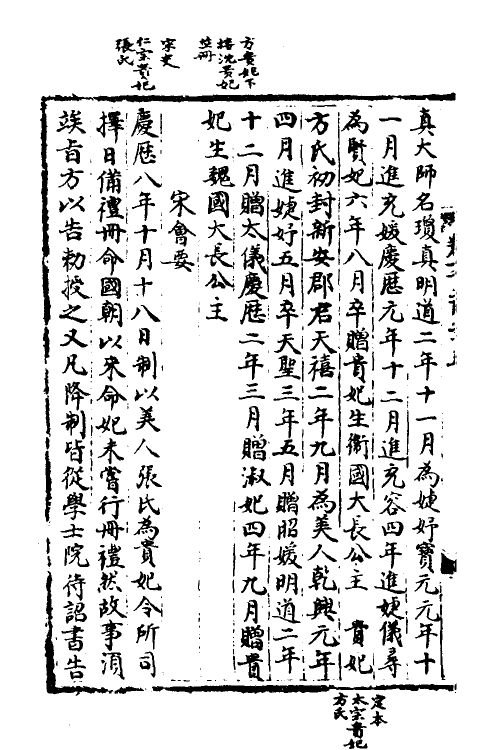 真大師名瓊真明道二年十一月為婕妤寶元元年十
一月進充媛慶曆元年十二月進充容四年進婕儀尋
為賢妃六年八月卒贈貴妃生衛國大長公主　貴妃
方氏初封新安郡君天禧二年九月為美人乾興元年
四月進婕妤五月卒天聖三年五月贈昭媛明道二年
十二月贈太儀慶曆二年三月贈淑妃四年九月贈貴
妃生魏國大長公主
宋會要
慶曆八年十月十八日制以美人張氏為貴妃令所司
擇日備禮冊命國朝以來命妃未嘗行冊禮然故事須
竢旨方以告勑授之又凡降制皆從學士院待詔書告
方貴妃下
接沈貴妃
並冊
宋史
仁宗貴妃
張氏
定本
太宗貴妃
方氏